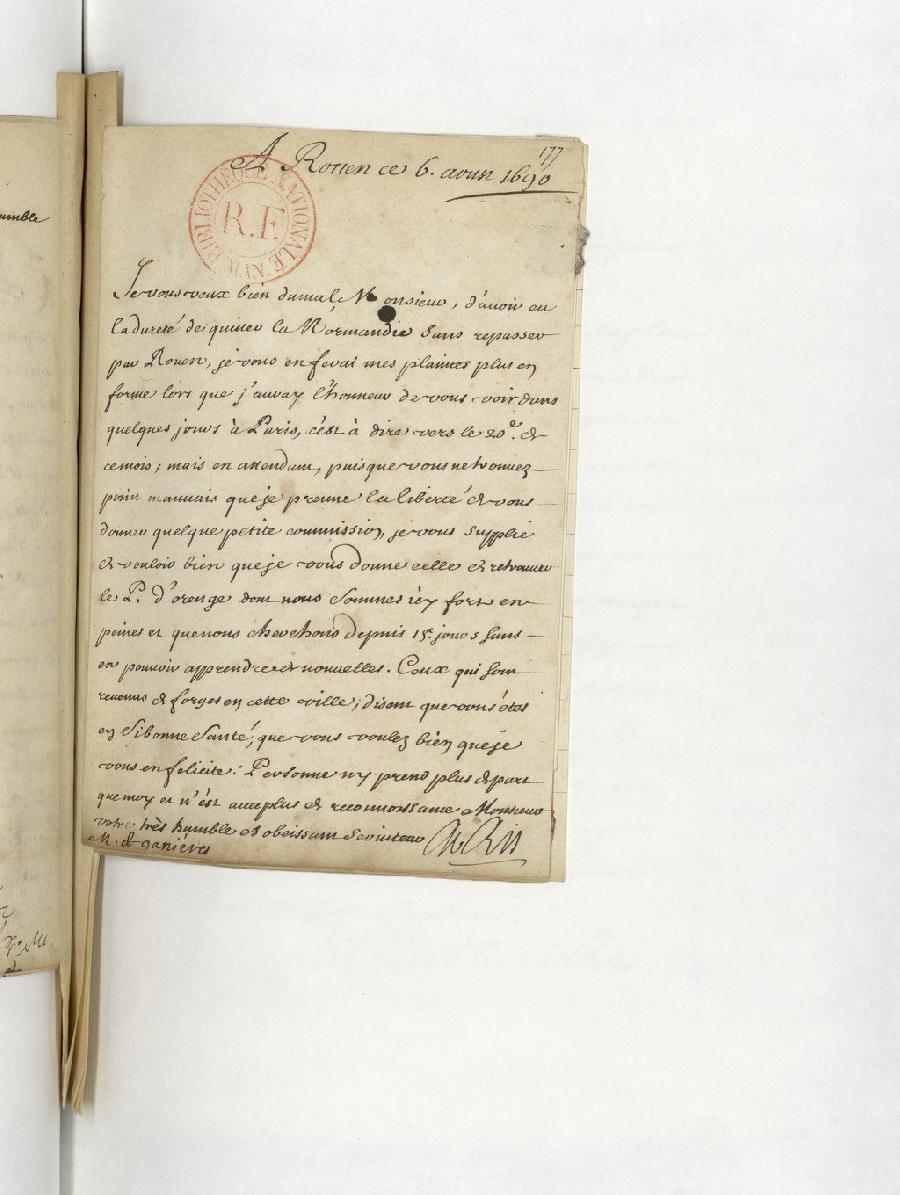 177
A Rouen ce 6. aoust 1690
BIBLIOTHEQUE NATIONALE
R.F.
Je vous veux bien du mal, Monsieur, d'avoir eu
la dureté de quitter la Normandie sans repasser
par Rouen, je vous en ferai mes plaintes plus en
forme lors que j'auray l'honneur de vous voir dans
quelques jours à Paris, c'est à dire vers le 20e. de
ce mois; mais en attendant, puisque vous ne trouvez
point mauvais que je prenne la liberté de vous
donner quelque petite commission, je vous supplie
de vouloir bien que je vous donne celle de retrouver
le P. d'orenge dont nous sommes icy fort en
peines et que nous cherchons depuis 15. jours sans
en pouvoir apprendre de nouvelles. Ceux qui sont
revenus de forges en cette ville, disent que vous étes
en si bonne santé, que vous voulez bien que je
vous en felicite: Personne n'y prend plus de part
que moy et n'est avec plus de reconnoissance Monsieur
votre très humble et obeissant serviteur
M. de ganiéres
umble